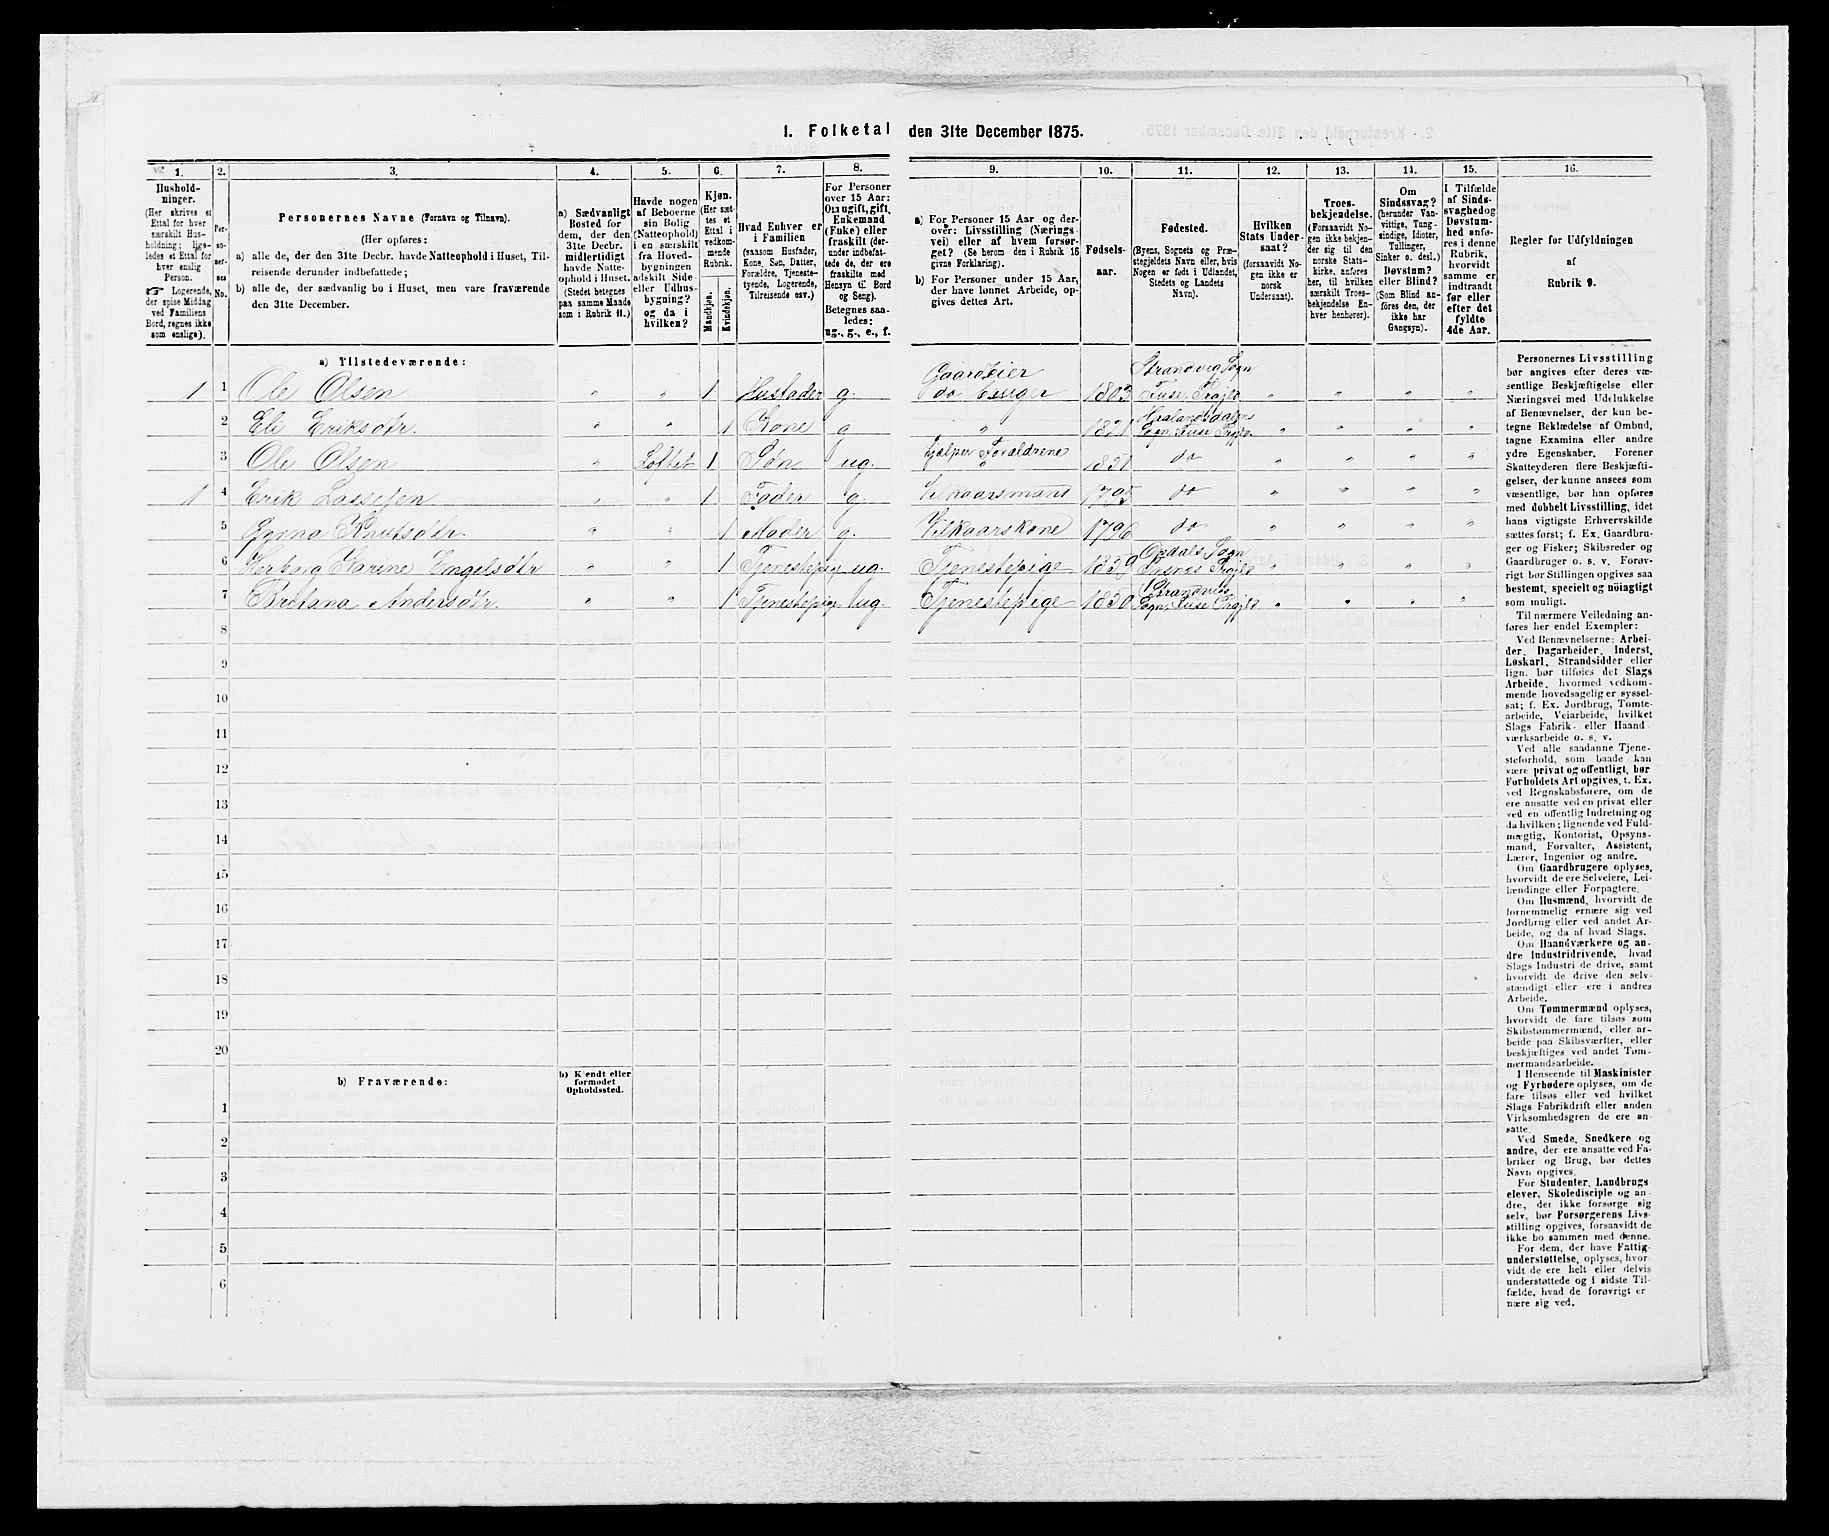 I. Folketal den 31te December 1875.
1. 2. 3. 4. 5. 6. 7. 8. 9. 10. 11. 12. 13. 14. 15. 16.
Hushold-
ninger.
(Her skrives et
Ettal for hver
særskilt Hus-
holdning; lige-
ledes et Ettal for
hver enslig
Person.
☞ Logerende,
der spise Middag
ved Familiens
Bord, regnes ikke
som enslige).
Per-
so-
ner-
nes
No.
Personernes Navne (Fornavn og Tilnavn).
(Her opføres:
a) alle de, der den 31te Decbr. havde Natteophold i Huset, Til-
reisende derunder indbefattede;
b) alle de, der sædvanlig bo i Huset, men vare fraværende
den 31te December.
a) Sædvanligt
Bosted for
dem, der den
31te Decbr.
midlertidigt
havde Natte-
ophold i Huset.
(Stedet betegnes
paa samme Maade
som i Rubrik 11.)
Havde nogen
af Beboerne
sin Bolig
(Natteophold)
i en særskilt
fra Hoved-
bygningen
adskilt Side-
eller Udhus-
bygning?
og da i
hvilken?
Kjøn.
(Her sæt-
tes et
Ettal i
vedkom-
mende
Rubrik.
Mandkjøn.
Kvindekjøn.
Hvad Enhver er
i Familien
(saasom Husfader,
Kone, Søn, Datter,
Forældre, Tjeneste-
tyende, Logerende,
Tilreisende osv.)
For Personer
over 15 Aar:
Om ugift, gift,
Enkemand
(Enke) eller
fraskilt (der-
under indbefat-
tede de, der ere
fraskilte med
Hensyn til Bord
og Seng).
Betegnes saa-
ledes:
ug., g., e., f.
a) For Personer 15 Aar og der-
over: Livsstilling (Nærings-
vei) eller af hvem forsør-
get? (Se herom den i Rubrik 16
givne Forklaring).
b) For Personer under 15 Aar,
der have lønnet Arbeide, op-
gives dettes Art.
Fødsels-
aar.
Fødested.
(Byens, Sognets og Præ-
stegjeldets Navn eller, hvis
Nogen er født i Udlandet,
Stedets og Landets
Navn).
Hvilken
Stats Under-
saat?
(forsaavidt No-
gen ikke er
norsk
Undersaat).
Troes-
bekjendelse.
(Forsaavidt No-
gen ikke bekjen-
der sig til den
norske Stats-
kirke, anføres
her, til hvilken
særskilt Troes-
bekjendelse En-
hver henhører).
Om
Sindssvag?
(herunder Van-
vittige, Tung-
sindige, Idioter,
Tullinger,
Sinker o. desl.)
Døvstum?
eller Blind?
(Som Blind an-
føres den, der
ikke har
Gangsyn).
I Tilfælde
af Sinds-
svaghed og
Døvstum-
hed anfø-
res i denne
Rubrik,
hvorvidt
samme er
indtraadt
før eller
efter det
fyldte
4de Aar.
Regler før Udfyldningen
af
Rubrik 9.
a) Tilstedeværende:
1 1 Ole Olsen " " 1 Husfader g. Gaardeier do bruger 1803 Strandvig Sogn Fuse Prgjld " " " "
2 Eli Eriksdtr. " " 1 Kone g " 1821 Haalandsdalens Sogn, Fuse Prgjld. " " " "
3 Ole Olsen " Loftet 1 Søn ug. hjelper Forældrene 1851 do " " " "
1 4 Erik Lassesen " " 1 Fader g. Vilkaarsmand 1795 do " " " "
5 Knutsdtr. " " 1 Moder g. Vilkaarskone 1796 do " " " "
6 Herborg Karine Engelsdtr " " 1 Tjenestepige ug. Tjenestepige 1859 Opdals Sogn Prgjld " " " "
7 Andersdtr. " " 1 Tjenestepige ug. Tjenestepige 1830 Strandvigs Sogn, Fuse Prgjld. " " " "
8
9
10
11
12
13
14
15
16
17
18
19
20
b) Fraværende:
b) Kjendt eller
formodet
Opholdssted.
1
2
3
4
5
6
Personernes Livsstilling
bør angives efter deres væ-
sentlige Beskjæftigelse eller
Næringsvei med Udelukkelse
af Benævnelser, der kun be-
tegne Beklædelse af Ombud,
tagne Examina eller andre
ydre Egenskaber. Forener
Skatteyderen flere Beskjæfti-
gelser, der kunne ansees som
væsentlige, bør han opføres
med dobbelt Livsstilling, idet
hans vigtigste Erhvervskilde
sættes først; f. Ex. Gaardbru-
ger og Fisker; Skibsreder og
Gaardbruger o. s. v. Forøv-
rigt bør Stillingen opgives saa
bestemt, specielt og nöiagtigt
som muligt.
Til nærmere Veiledning an-
føres her endel Exempler:
Ved Benævnelserne: Arbei-
der, Dagarbeider, Inderst,
Løskarl, Strandsidder eller
lign. bør tilføies det Slags
Arbeide, hvormed vedkom-
mende hovedsagelig er syssel-
sat; f. Ex. Jordbrug, Tomte-
arbeide, Veiarbeide, hvilket
Slags Fabrik- eller Haand-
værksarbeide o. s. v.
Ved alle saadanne Tjene-
steforhold, som baade kan
være privat og offentligt, bør
Forholdets Art opgives, t. Ex.
ved Regnskabsførere, om de
ere ansatte ved en privat eller
ved en offentlig Indretning og
da hvilken; lignende ved Fuld-
mægtig, Kontorist, Opsyns-
mand, Forvalter, Assistent,
Lærer, Ingeniør og andre.
Om Gaardbrugere oplyses,
hvorvidt de ere Selveiere, Lei-
lændinge eller Forpagtere.
Om Husmænd, hvorvidt de
fornemmelig ernære sig ved
Jordbrug eller ved andet Ar-
beide, og da af hvad Slags.
Om Haandværkere og an-
dre Industridrivende, hvad
Slags Industri de drive, samt
hvorvidt de drive den selv-
stændigt eller ere i andres
Arbeide.
Om Tømmermænd oplyses,
hvorvidt de fare tilsøs som
Skibstømmermænd, eller ar-
beide paa Skibsværfter, eller
beskjæftiges ved andet Tøm-
mermandsarbeide.
I Henseende til Maskinister
og Fyrbødere oplyses, om de
fare tilsøs eller ved hvilket
Slags Fabrikdrift eller anden
Virksomhedsgren de ere an-
satte.
Ved Smede, Snedkere og
andre, der ere ansatte ved Fa-
briker og Brug, bør dettes
Navn opgives.
For Studenter, Landbrugs-
elever, Skoledisciple og an-
dre, der ikke forsørge sig
selv, bør Forsørgerens Livs-
stilling opgives, forsaavidt de
ikke bo sammen med denne.
For dem, der have Fattig-
understøttelse, oplyses, hvor-
vidt de ere helt eller delvis
understøttede og i sidste Til-
fælde, hvad de forøvrigt er
nære sig ved.